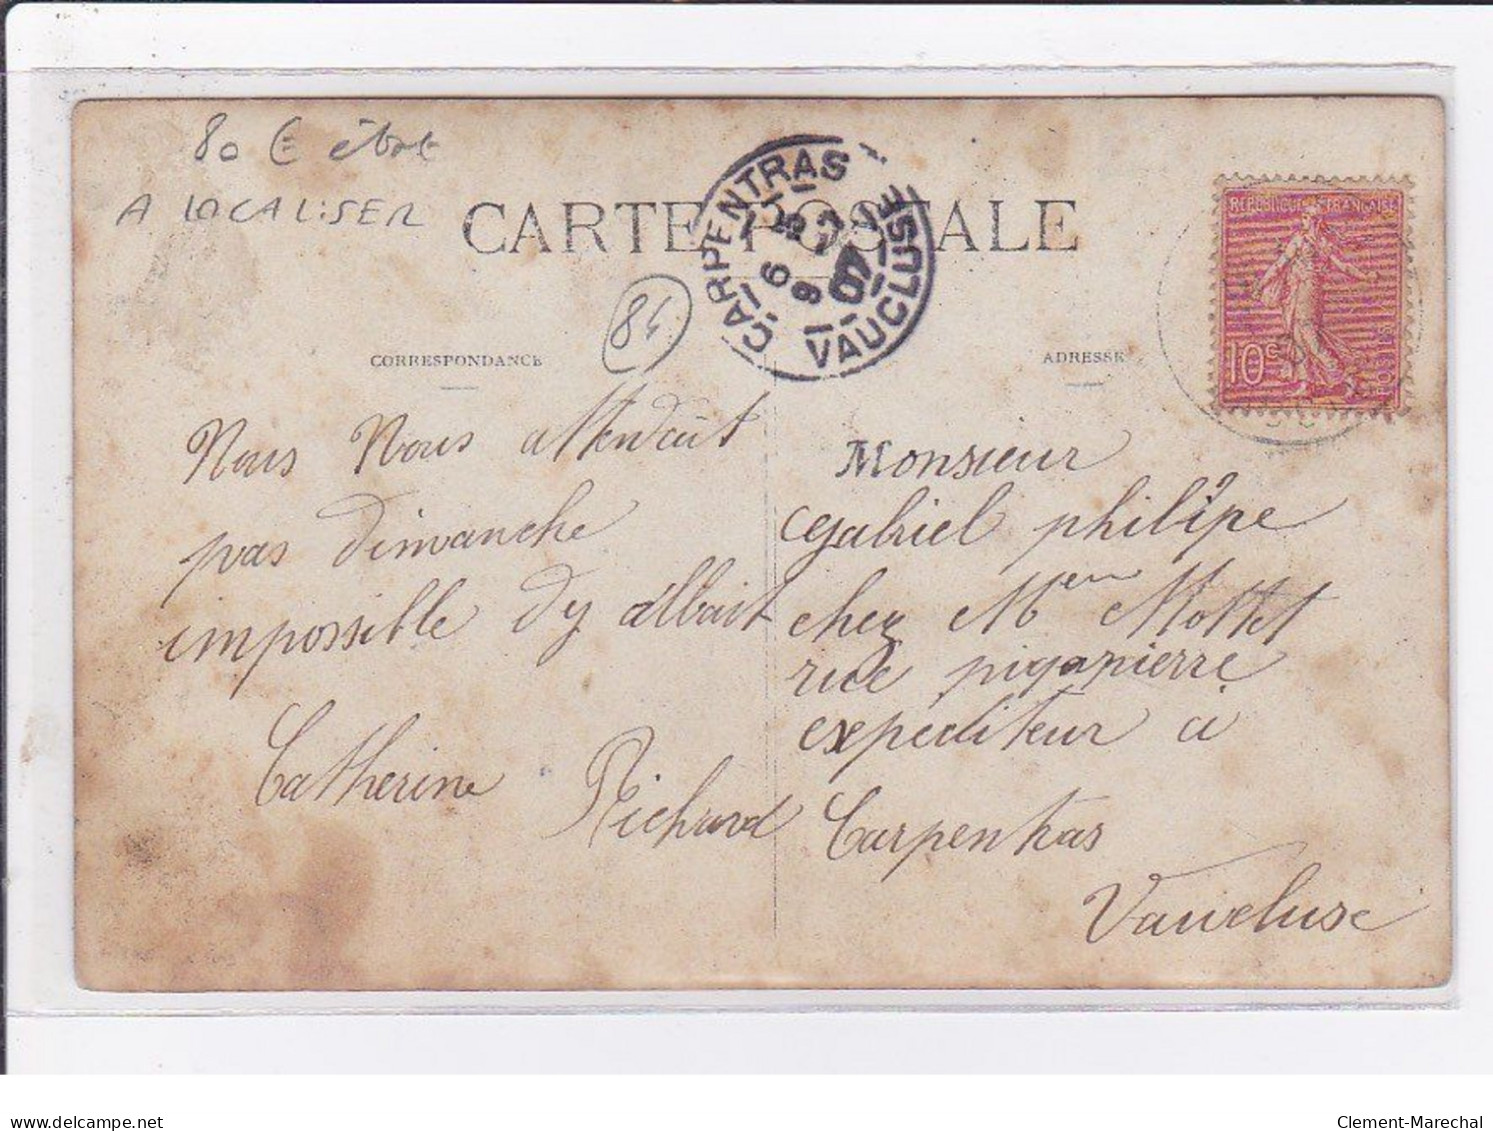 80 € état
A LOCALISER
CARTE POSTALE
CARPENTRAS
VAUCLUSE
6 9 07
84
REPUBLIQUE FRANÇAISE
10c
POSTES
CORRESPONDANCE
ADRESSE
Nous Nous attendait
pas dimanche
impossible dy allait
Catherine Richard
Monsieur
Gabriel philipe
chez Men Mottet
rue pigapierre
expediteur a
Carpentras
Vaucluse
delcampe.net
Clement-Marechal